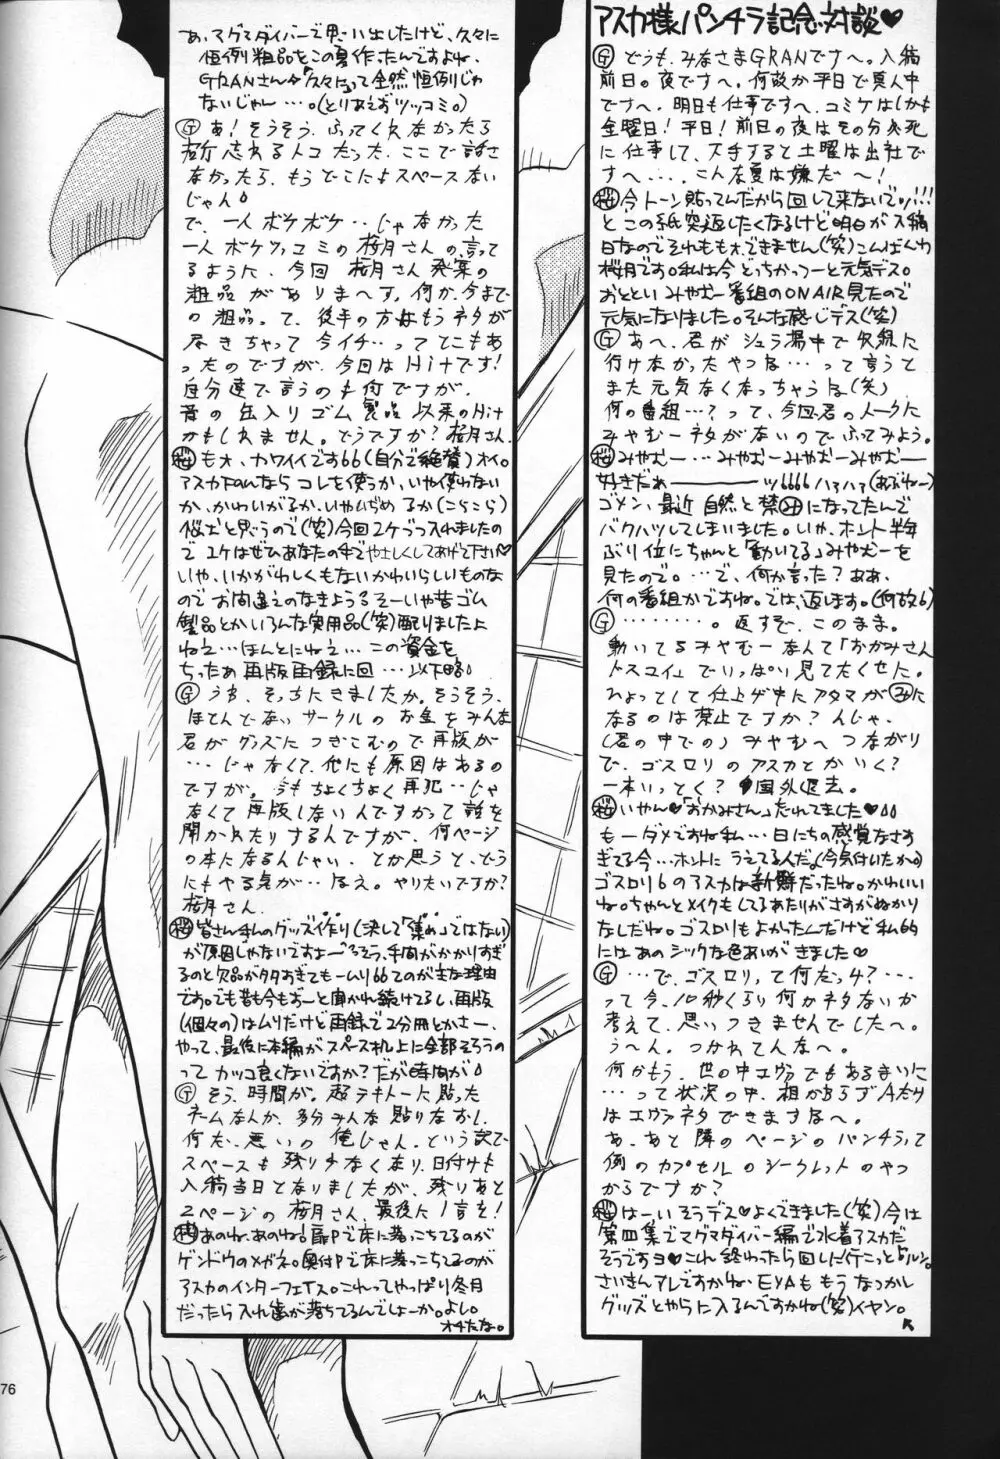 アスカ様パンチラ記念対談♥
Ⓖどうも、みなさまGRANですへ。入稿
前日。夜ですへ。何故か平日で真人中
ですへ。明日も仕事ですへ。コミケはしかも
金曜日!平日!前日の夜はその分必死
に仕事して、大手すると土曜は出社で
すへ....こんな夏は嫌だへ〜!
桜今トーン貼ってんだから回して来ないでッ!!!
とこの紙突返したくなるけど明日が入稿
日なのでそれもも大できません(笑)こんばんわ
桜月です。私は今どっちかっつーと元気デス。
おとといみやむー番組のONAIR見たので
元気になりました。そんな感じデス(笑)
Ⓖあへ、君がシュラ場中で収録に
行けなかったやつな...って言うと
また元気なくなっちゃうな(笑)
何の番組...?って、今回君のトークに
みやむーネタがないのでふってみよう。
桜みやむー...みやむーみやむーみやむー
好きだぁーーーッ ハァハァ(あぶねー)
ゴメン、最近自然と禁みになってたんで
バクハツしてしまいました。いゃ、ホント半年
ぶり位にちゃんと「動いてる」みやむーを
見たので。...で、何か言った?ああ、
何の番組かですね。では、返します。(何故6)
Ⓖ........。返すぞ、このまま。
動いてるみやむーなんて「おかみさん
ドスコイ」でいっぱい見てたくせに。
ひょっとして仕上げ中にアタマがみに
なるのは禁止ですか?んじゃ、
(君の中での)みやむへつながり
で、ゴスロリのアスカとかいく?
一本いっとく?国外退去。
桜いやん♥「おかみさん」たれてました♥
もーダメですね私...日にちの感覚なさす
ぎてる今...ホントにうえてるんだ。(今気付いたか)
ゴスロリ6のアスカは新鮮だったね。かわいい
ね。ちゃんとメイクもしてるあたりがさすがぬかり
なしだね。ゴスロリもよかったんだけど私的
にはあのシックな色あいがきました♥
Ⓖ...で、ゴスロリって何だっけ?...
って今、10秒くらい何かネタないか
考えて、思いつきませんでしたへ。
うーん。つかれてんなへ。
何かもう、世の中エヴァでもあるまいに
...って状況の中、相かBらずAだけ
はエヴァネタできますなへ。
あ、あと隣のページのパンチラって
例のカプセルのシークレットのやつ
からですか?
桜はーいそうデス♥よくできました(笑)今は
第四集でマグマダイバー編で水着アスカだ
そうですヨ♥これ終わったら回しに行こっとルン。
さいきんアレですかね、EVAももうなつかし
グッズとやらに入るんですかね(笑)イヤン。
あ、マグマダイバーで思い出したけど、久々に
恒例粗品をこの夏作ったんですよね、
GRANさん♂「久々に」って全然恒例じゃ
ないじゃん...。(とりあえずツッコミ。)
Ⓖあ!そうそう、ふってくれなかったら
忘れるトコだった、ここで話さ
なかったら、もうどこにもスペースない
じゃん
で、一人ボケボケ...じゃなかった
一人ボケツッコミの桜月さんの言って
るように、今回桜月さん発案の
粗品がありまーす。何か、今まで
の粗品って、後手の方はもうネタが
尽きちゃって今イチ...ってとこもあ
ったのですが、今回はHitです!
自分達で言うのも何ですが、
昔の缶入りゴム製品以来のHit
かもしれません。どうですか?桜月さん.
桜も大、カワイイです66(自分で絶賛)オイ。
アスカFanならコレを使うか、いや使わない
か、かわいがるか、いやいぢめるか(こらこら)
悩むと思うので(笑)今回2ケづつ入れましたの
で1ケはぜひあなたの手でやさしくしてあげて下さい♡
いや、いかがわしくもないかわいらしいものな
のでお間違えのなきようるそーいや昔ゴム
製品とかいろんな実用品(笑)配りましたよ
ねえ...ほんとにねえ...この資金を
ちったあ再版再録に回...以下略
Ⓖうわ、そっちにきましたか。そうそう、
ほとんどないサークルのお金をみんな
君がグッズにつぎこむので再版が
...じゃなくて、他にも原因はあるの
ですが。今もちょくちょく再犯...じゃ
なくて再版しないんですかって話を
聞かれたりするんですが、何ページ
の本になるんじゃい、とか思うと、どう
にもやる気が...ねえ。やりたいですか?
桜月さん
桜皆さん私のグッズ作り(決して「集め」ではない)
が原因じゃないですよーうるそう、手間がかかりすぎ
るのと欠品が多すぎてもームリ66てのが主な理由
です。でも昔も今もずーと聞かれ続けてるし、再版
(個々の)はムリだけど再録で2分冊とかさー、
やって、最後に本編がスペース机上に全部そろうの
ってカッコ良くないですか?だが時間が
Ⓖそう、時間が。超テキトーに貼った
ネームなんか、多分みんな貼りなおし、
何だ、悪いの俺じゃん、という訳で
スペースも残り少なくなり、日付けも
入稿当日となりましたが、残りあと
2ページの桜月さん、最後に1言を!
桜あのね、あのね!扉Pで床に落っこちてるのが
ゲンドウのメガネ。奥付Pで床に落っこちてるのが
アスカのインターフェイス。これってやっぱり冬月
だったら入れ歯が落ちてるんでしょーか。よし。
オチたな。
76